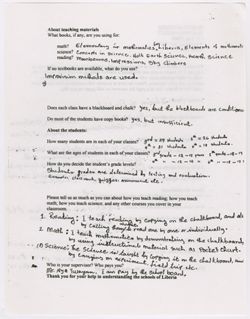 About teaching materials
What books, if any, are you using for:
math? Elementary in mathematics by Liberia, Elements of mathematics
science? Concepts in Science, Holt Earth Science, Health Science
reading? Moonbeams, Impressions, Sky Climbers
If no textbooks are available, what do you use?
Improvision methods are used.
Does each class have a blackboard and chalk? yes, but the blackboards are
Do most of the students have copy books? yes, but insufficient.
About the students:
How many students are in each of your classes?
What are the ages of students in each of your classes?
How do you decide the student's grade levels?
Students grades are determined by testing and evaluation.
Example class work, quizzes, assignment etc.
Please tell us as much as you can about how you teach reading, how you teach
math, how you teach science, and any other courses you cover in your
classroom.
1. Reading: I teach reading by copying on the chalkboard, and
by calling people read one by one or individually.
2. Math: I teach mathematics by demonstrating on the chalkboard,
by using instructional material such as Pocket Chart.
Science: the Science is taught by copying it on the chalkboard, and
by carrying on experiment, field trip etc.
Who is your supervisor? Who pays you?
I am pay by the school board.
Thank you for your help in understanding the schools of Liberia